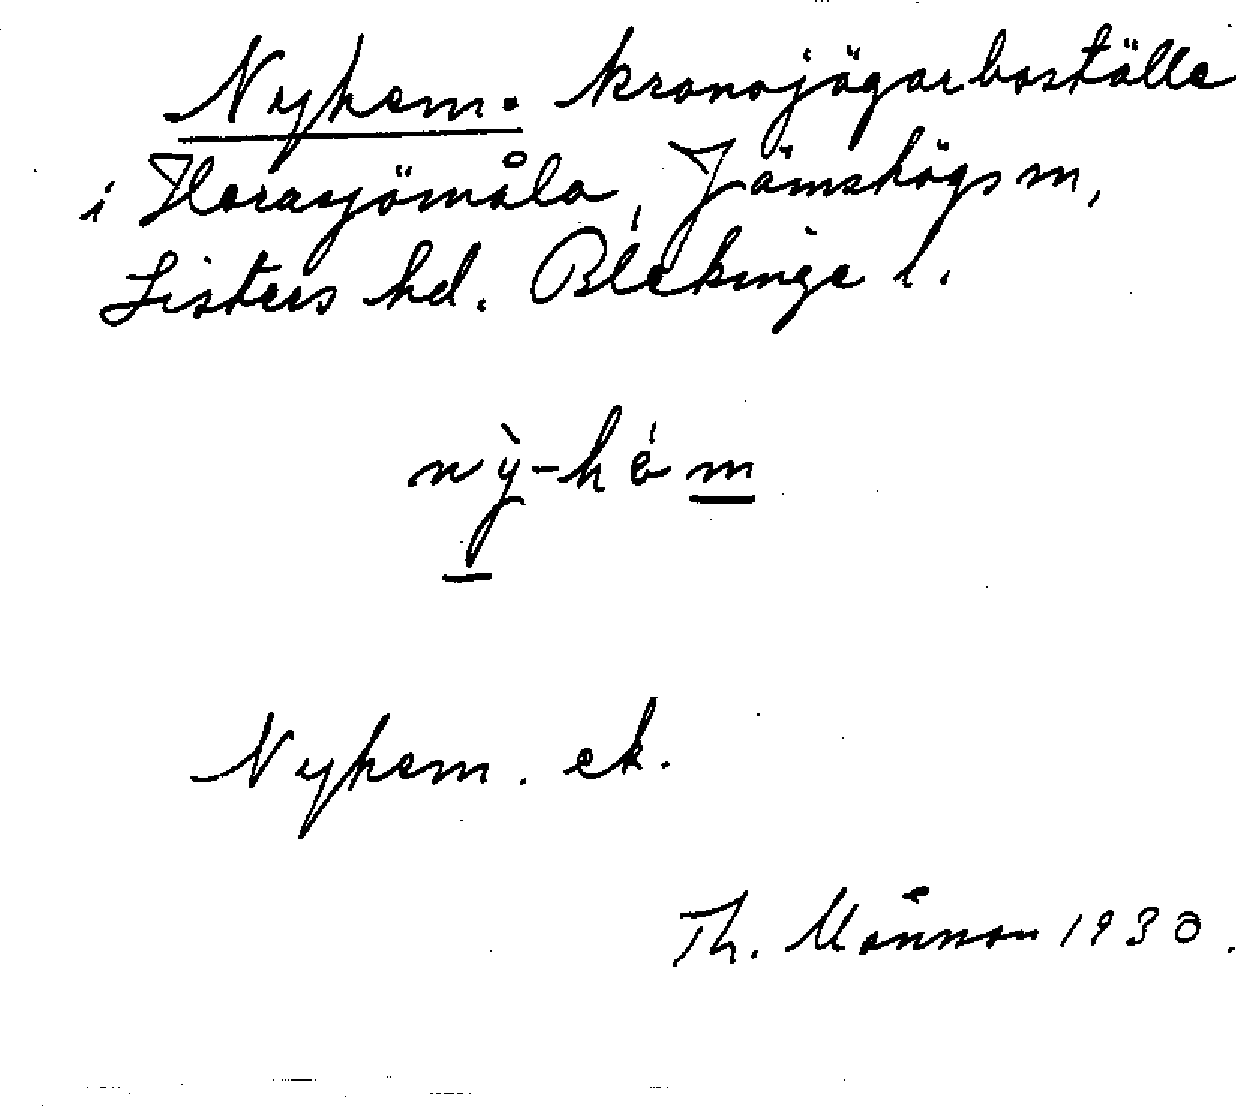 Nyhem. kronojägarboställe
i Harasjömåla, Jämshögs sn,
Listers hd. Blekinge l.
nỳ-hém
Nyhem. ek.
Th. 1930.